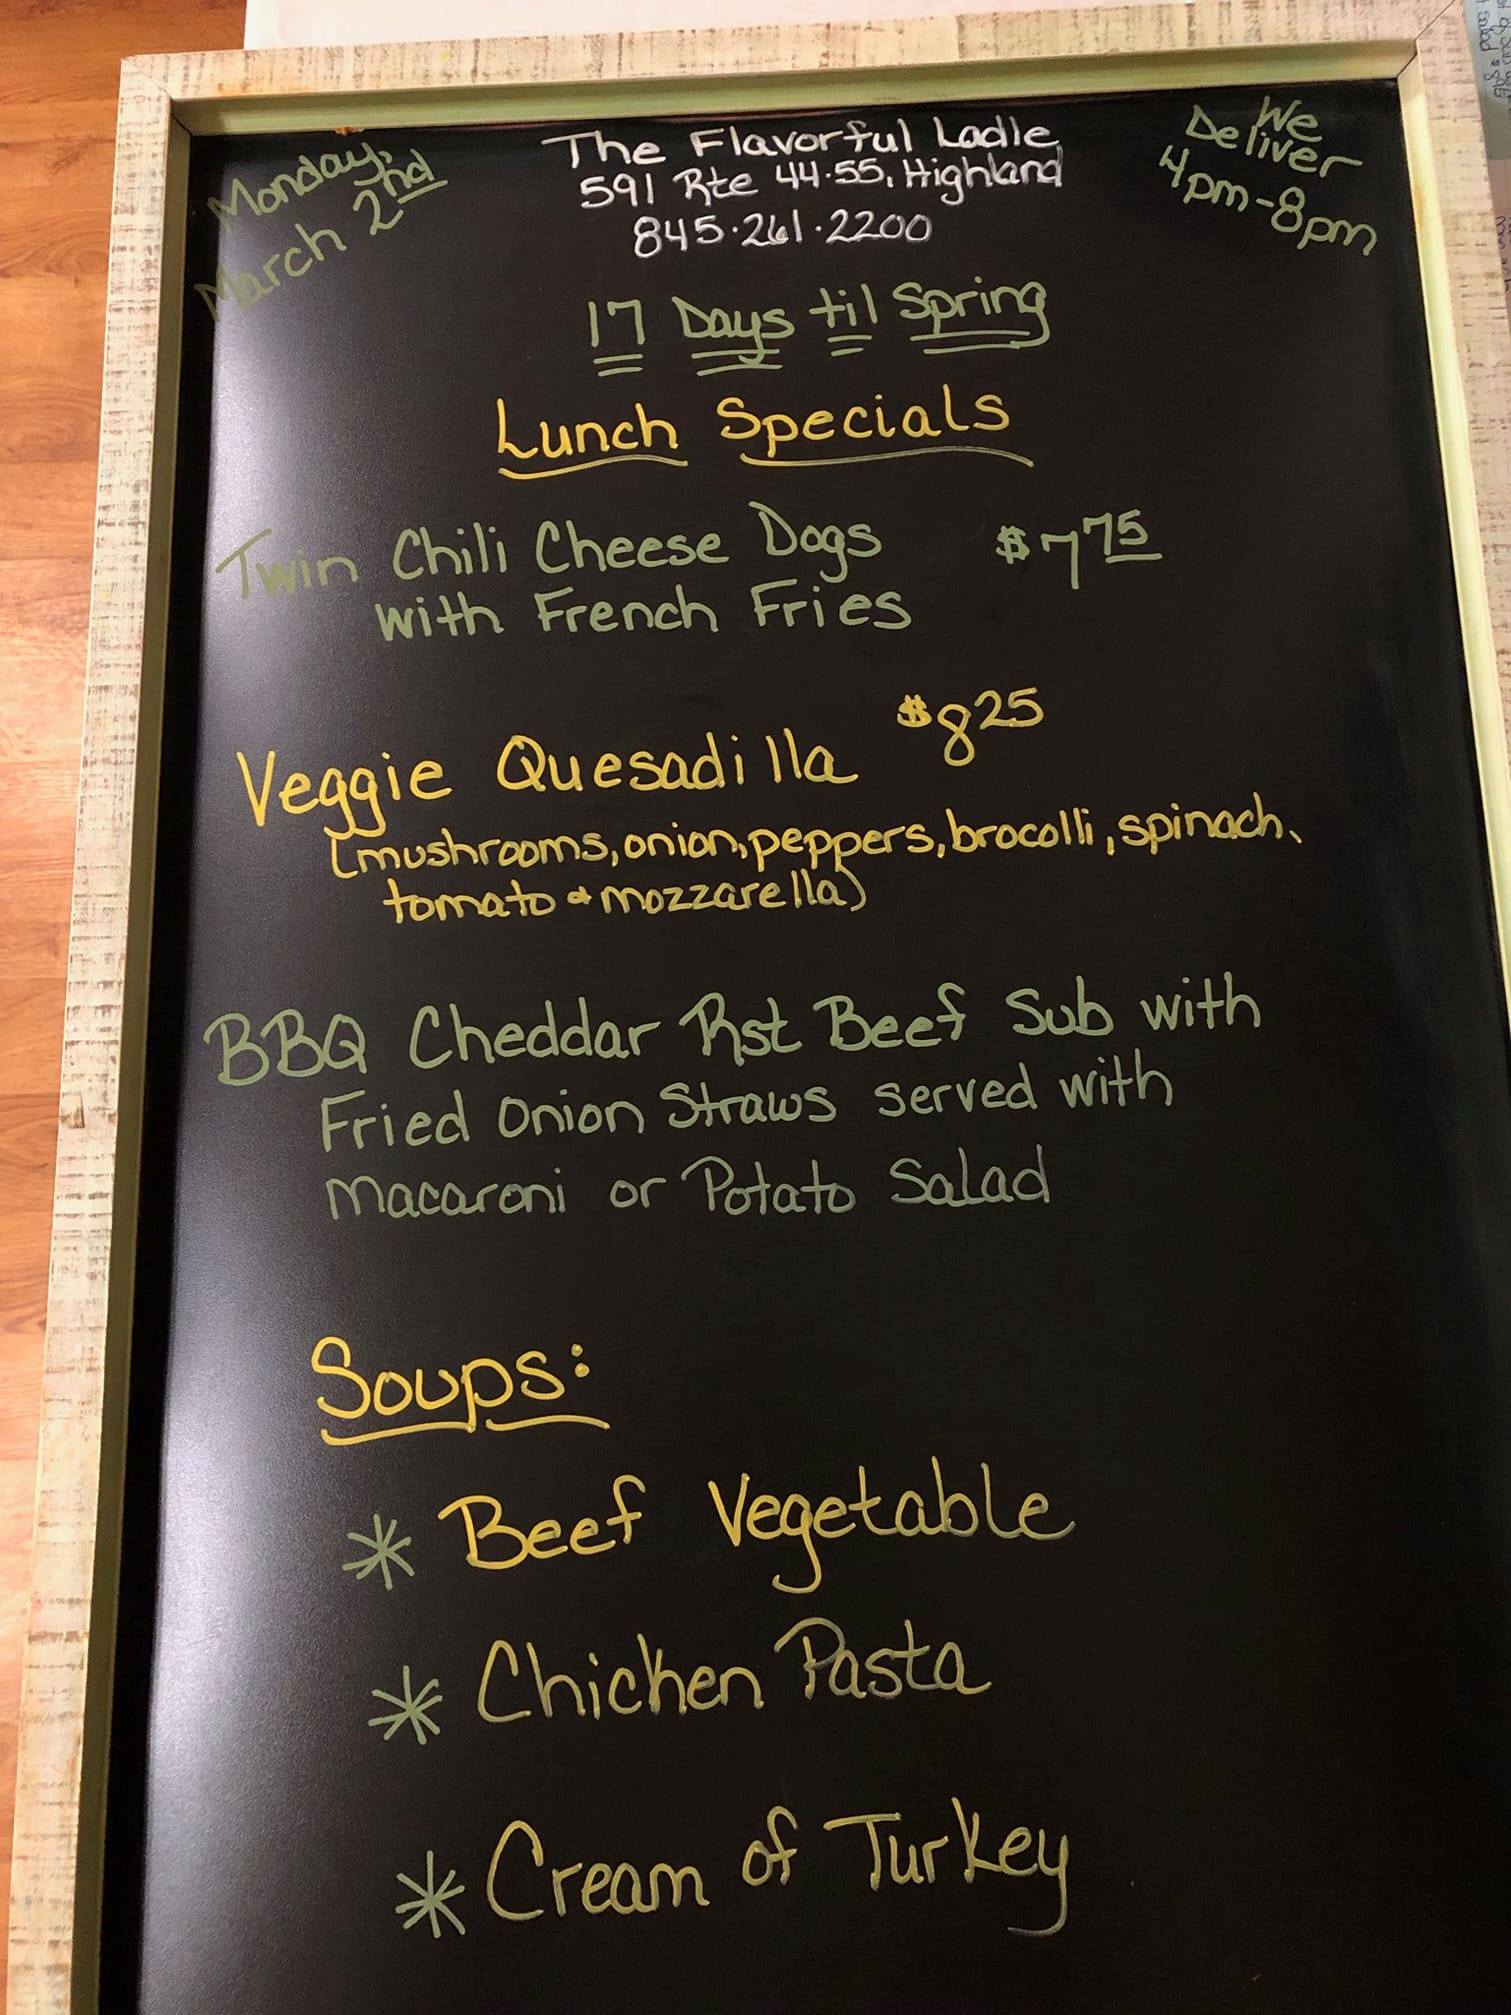 Monday,
March 2nd
The Flavorful Ladle
591 Rte 44·55, Highland
845·261·2200
We
Deliver
4pm-8pm
17 Days til Spring
Lunch Specials
Twin Chili Cheese Dogs $7 75
with French Fries
Veggie Quesadilla $8 25
(mushrooms, onion, peppers, brocolli, spinach,
tomato & mozzarella)
BBQ Cheddar Rst Beef Sub with
Fried Onion Straws served with
Macaroni or Potato Salad
Soups:
* Beef Vegetable
* Chicken Pasta
* Cream of Turkey